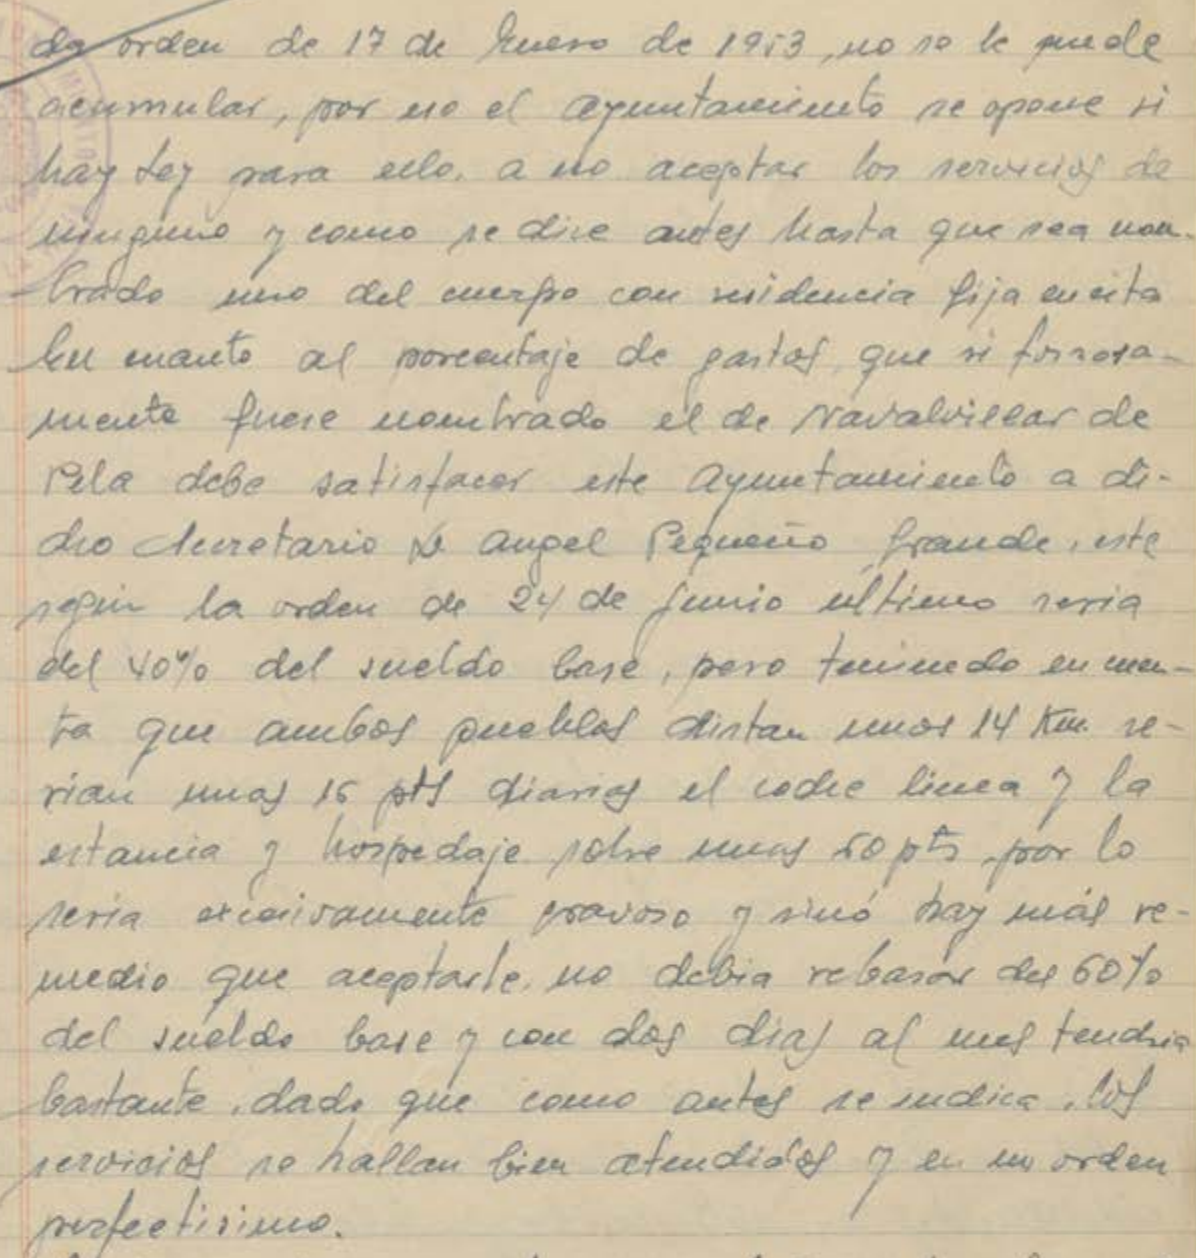 da orden de 17 de Enero de 1953, no se le puede
acumular, por eso el ayuntamiento se opone si
hay Ley para ello. a no aceptar los servicios de
ninguno y como se dice antes hasta que sea nom-
brado uno del cuerpo con residencia fija en esta
En cuanto al porcentaje de gastos, que si forzosa-
mente fuese nombrado el de Navalvillar de
Pela debe satisfacer este Ayuntamiento a di-
cho Secretario D. Angel Pequeño Grande, este
según la orden de 24 de junio ultimo seria
del 40% del sueldo base, pero teniendo en cuen-
ta que ambos pueblos distan unos 14 Km. se-
rian unas 15 pts diarias el coche linea y la
estancia y hospedaje sobre unas 50 pts, por lo
seria excesivamente gravoso y sinó hay más re-
medio que aceptarle, no debia rebasar del 60%
del sueldo base y con dos dias al mes tendria
bastante, dado que como antes se indica, los
servicios se hallan bien atendidos y en un orden
perfectisimo.